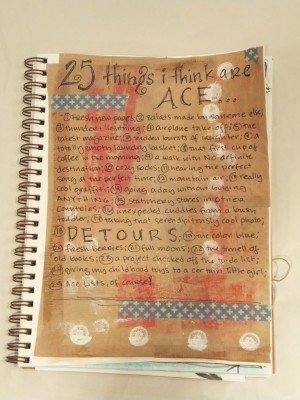 25 things i think are
ACE...
① fresh new pages; ② salads made by someone else;
③ thunder & lightning; ④ airplane take off; ⑤ the
latest magazine; ⑥ sudden bursts of laughter; ⑦ a
totally empty laundry basket; ⑧ that first cup of
coffee in the morning; ⑨ a walk with no definite
destination; ⑩ cozy socks; ⑪ hearing the perfect
song at the perfect time; ⑫ mountain air; ⑬ really
cool graffiti; ⑭ going a day without buying
ANYTHING; ⑮ stationery stores in other
countries; ⑯ unexpected cuddles from a
toddler; ⑰ taking that serendipitously cool photo;
⑱ DETOURS; ⑲ the color blue;
⑳ fresh berries; ㉑ full moons; ㉒ the smell of
old books; ㉓ a project checked off the to-do list;
㉔ giving my childhood toys to a certain little girl;
㉕ ACE lists, of course!